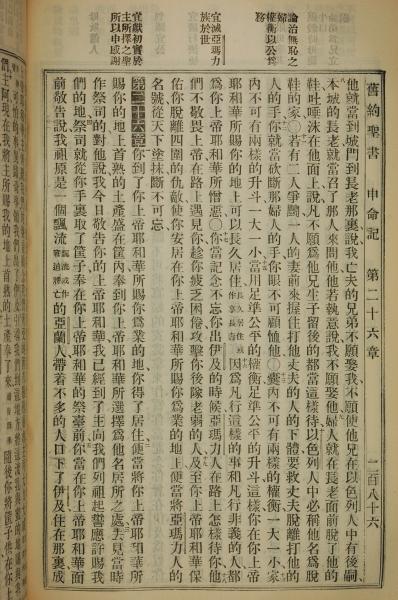 舊約聖書 申命記 第二十六章 二百八十六
論治無恥之
婦
權衡以公爲
務
宜滅亞瑪力
族於世
宜獻初實於
主所擇之聖
所以申感謝
他就當到城門到長老那裏說我亡夫的兄弟不願娶我不願使他兄在以色列人中有後嗣
本城的長老就當召了那人來問他他若執意說我不願娶他婦人就在長老面前脫了他的
鞋吐唾沫在他面上說凡不願爲他兄生子留後的都當這樣待以色列人中必稱他名爲脫
鞋的家○若有二人爭鬭一人的妻前來握住打他丈夫的人的下體要救丈夫脫離打他的
人的手你就當砍斷那婦人的手你眼不可顧恤他○囊內不可有兩樣的權衡一大一小家
內不可有兩樣的升斗一大一小當用足準公平的權衡足準公平的升斗這樣你在你上帝
耶和華所賜你的地上可以長久居住因爲凡行這樣的事和凡行非義的人都
爲你上帝耶和華所憎惡○你當記念不忘你出伊及的時候亞瑪力人在路上怎樣待你他
們不敬畏上帝在路上遇見你趁你疲乏困倦攻擊你後隊老弱的人及至你上帝耶和華保
佑你脫離四圍的仇敵使你安居在你上帝耶和華所賜你爲業的地上便當將亞瑪力人的
名號從天下塗抹斷不可忘
第二十六章 你到了你上帝耶和華所賜你爲業的地你得了居住便當將你上帝耶和華所
賜你的地上首熟的土產盛在筐內奉到你上帝耶和華所選擇爲他名居所之處去見當時
作祭司的對他說我今日敬告你的上帝耶和華我已經到了主向我們列祖起誓應許賜我
們的地祭司就從你手裏取了筐子奉在你上帝耶和華的祭臺前你當在你上帝耶和華面
前敬告說我祖原是一個飄流亡的亞蘭人帶著不多的人口下了伊及住在那裏成